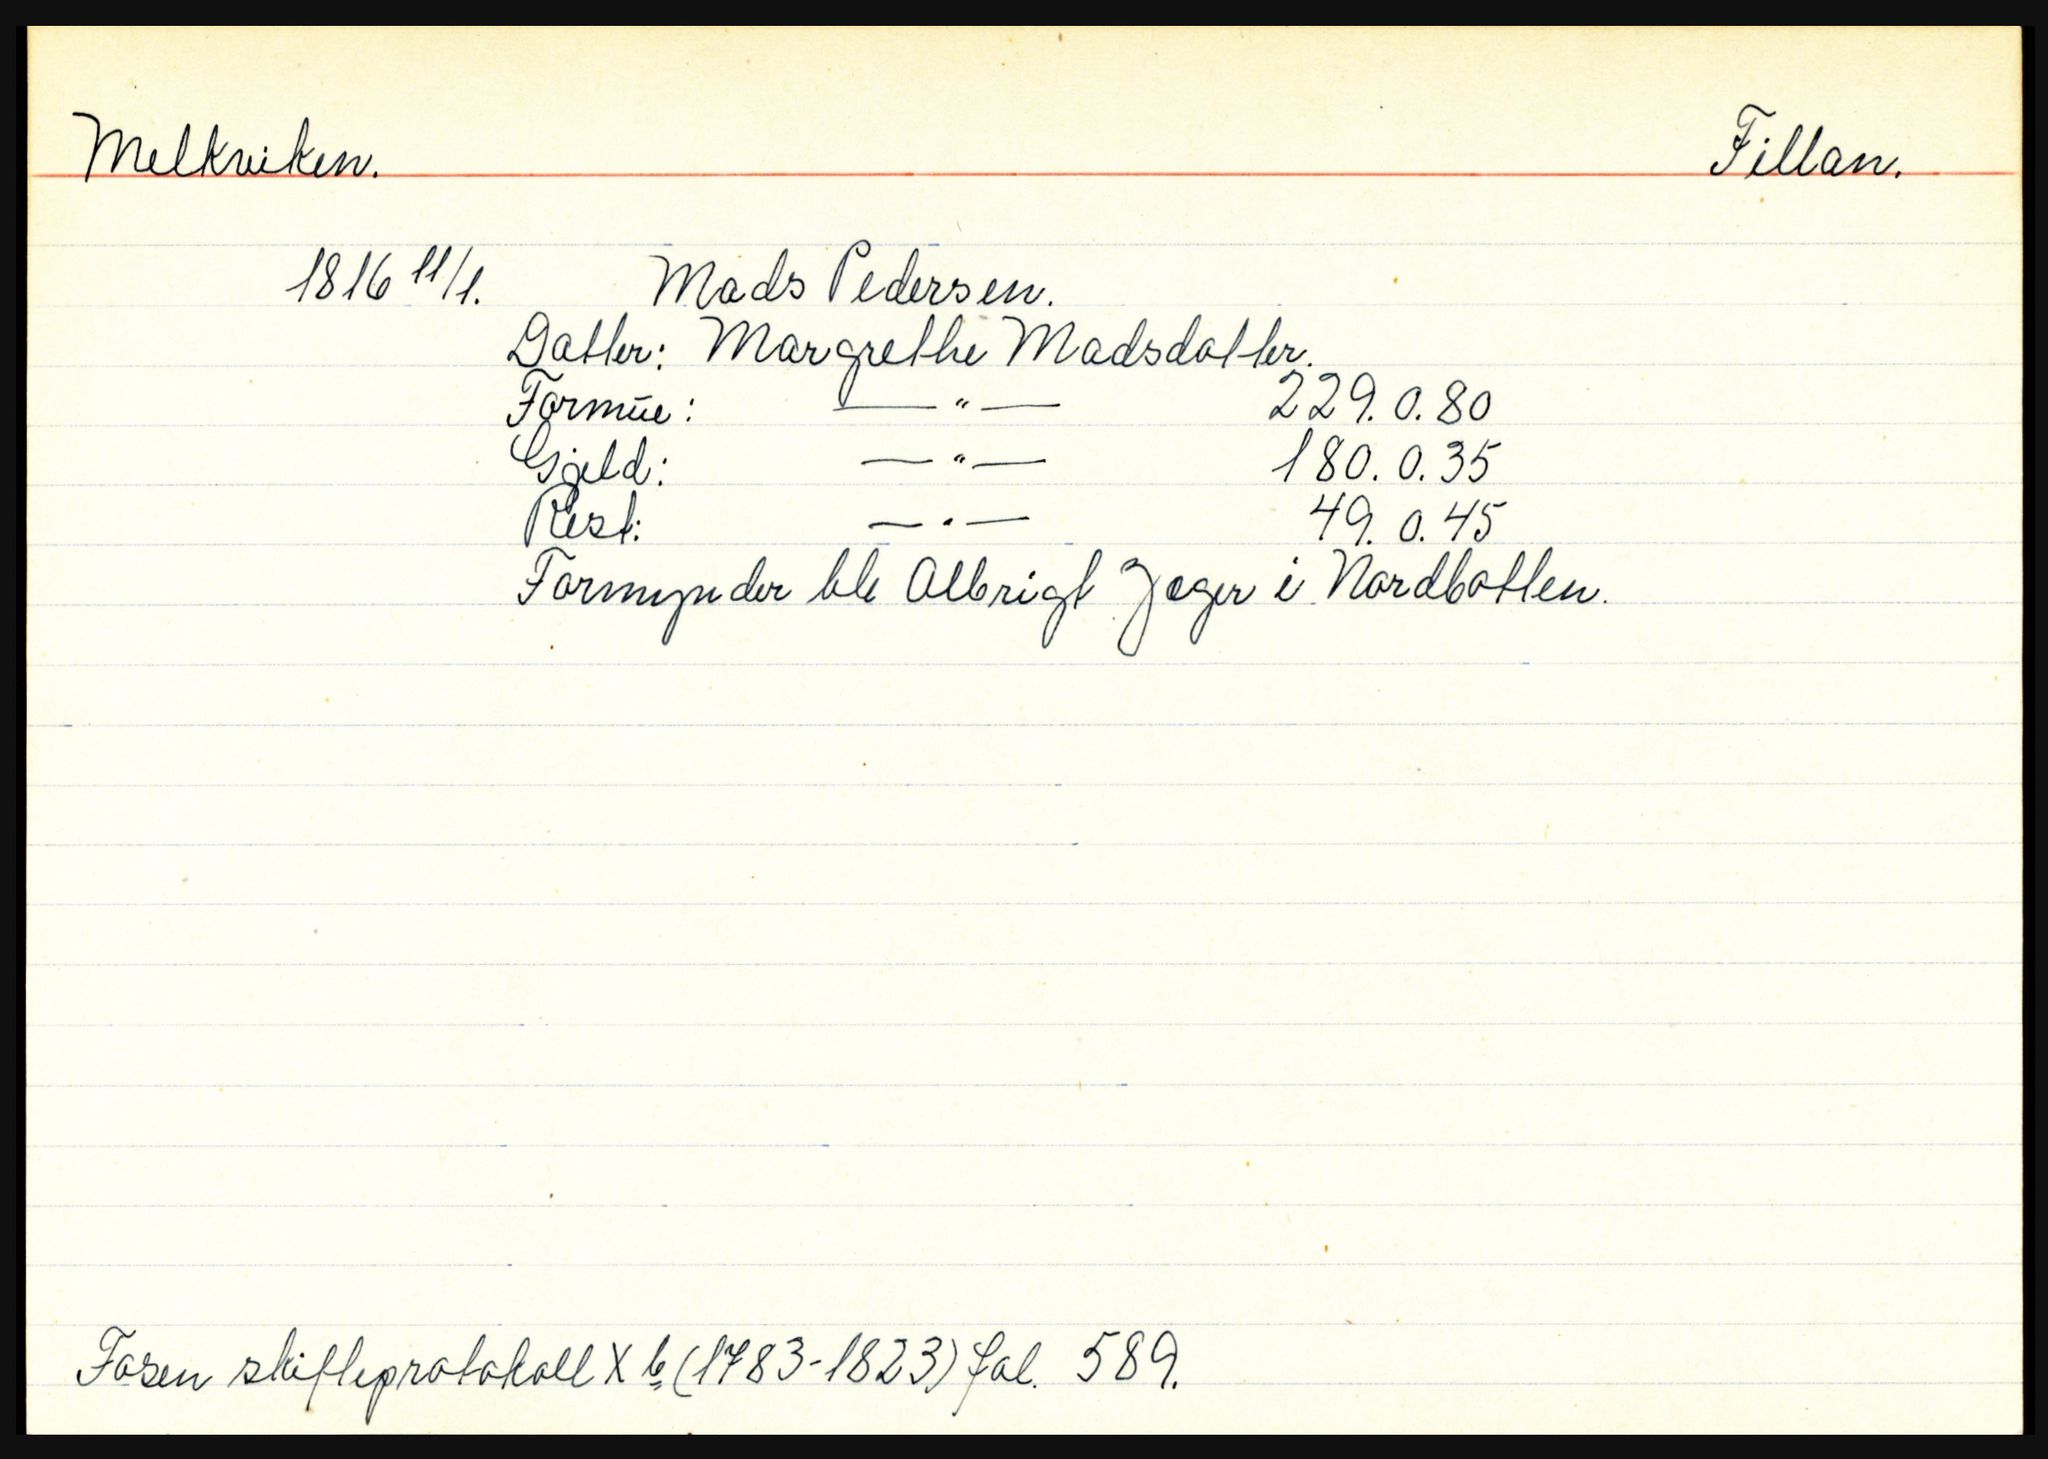 Melkviken. Fillan.
1816 11/1. Mads Pedersen.
Datter: Margrethe Madsdatter.
Formüe: — " — 229. 0. 80
Gjeld: — " — 180. 0. 35
Rest: — " — 49. 0. 45
Formynder ble Albrigt Jæger i Nordbotten.
Fosen skifteprotokoll X b (1783-1823) fol. 589.